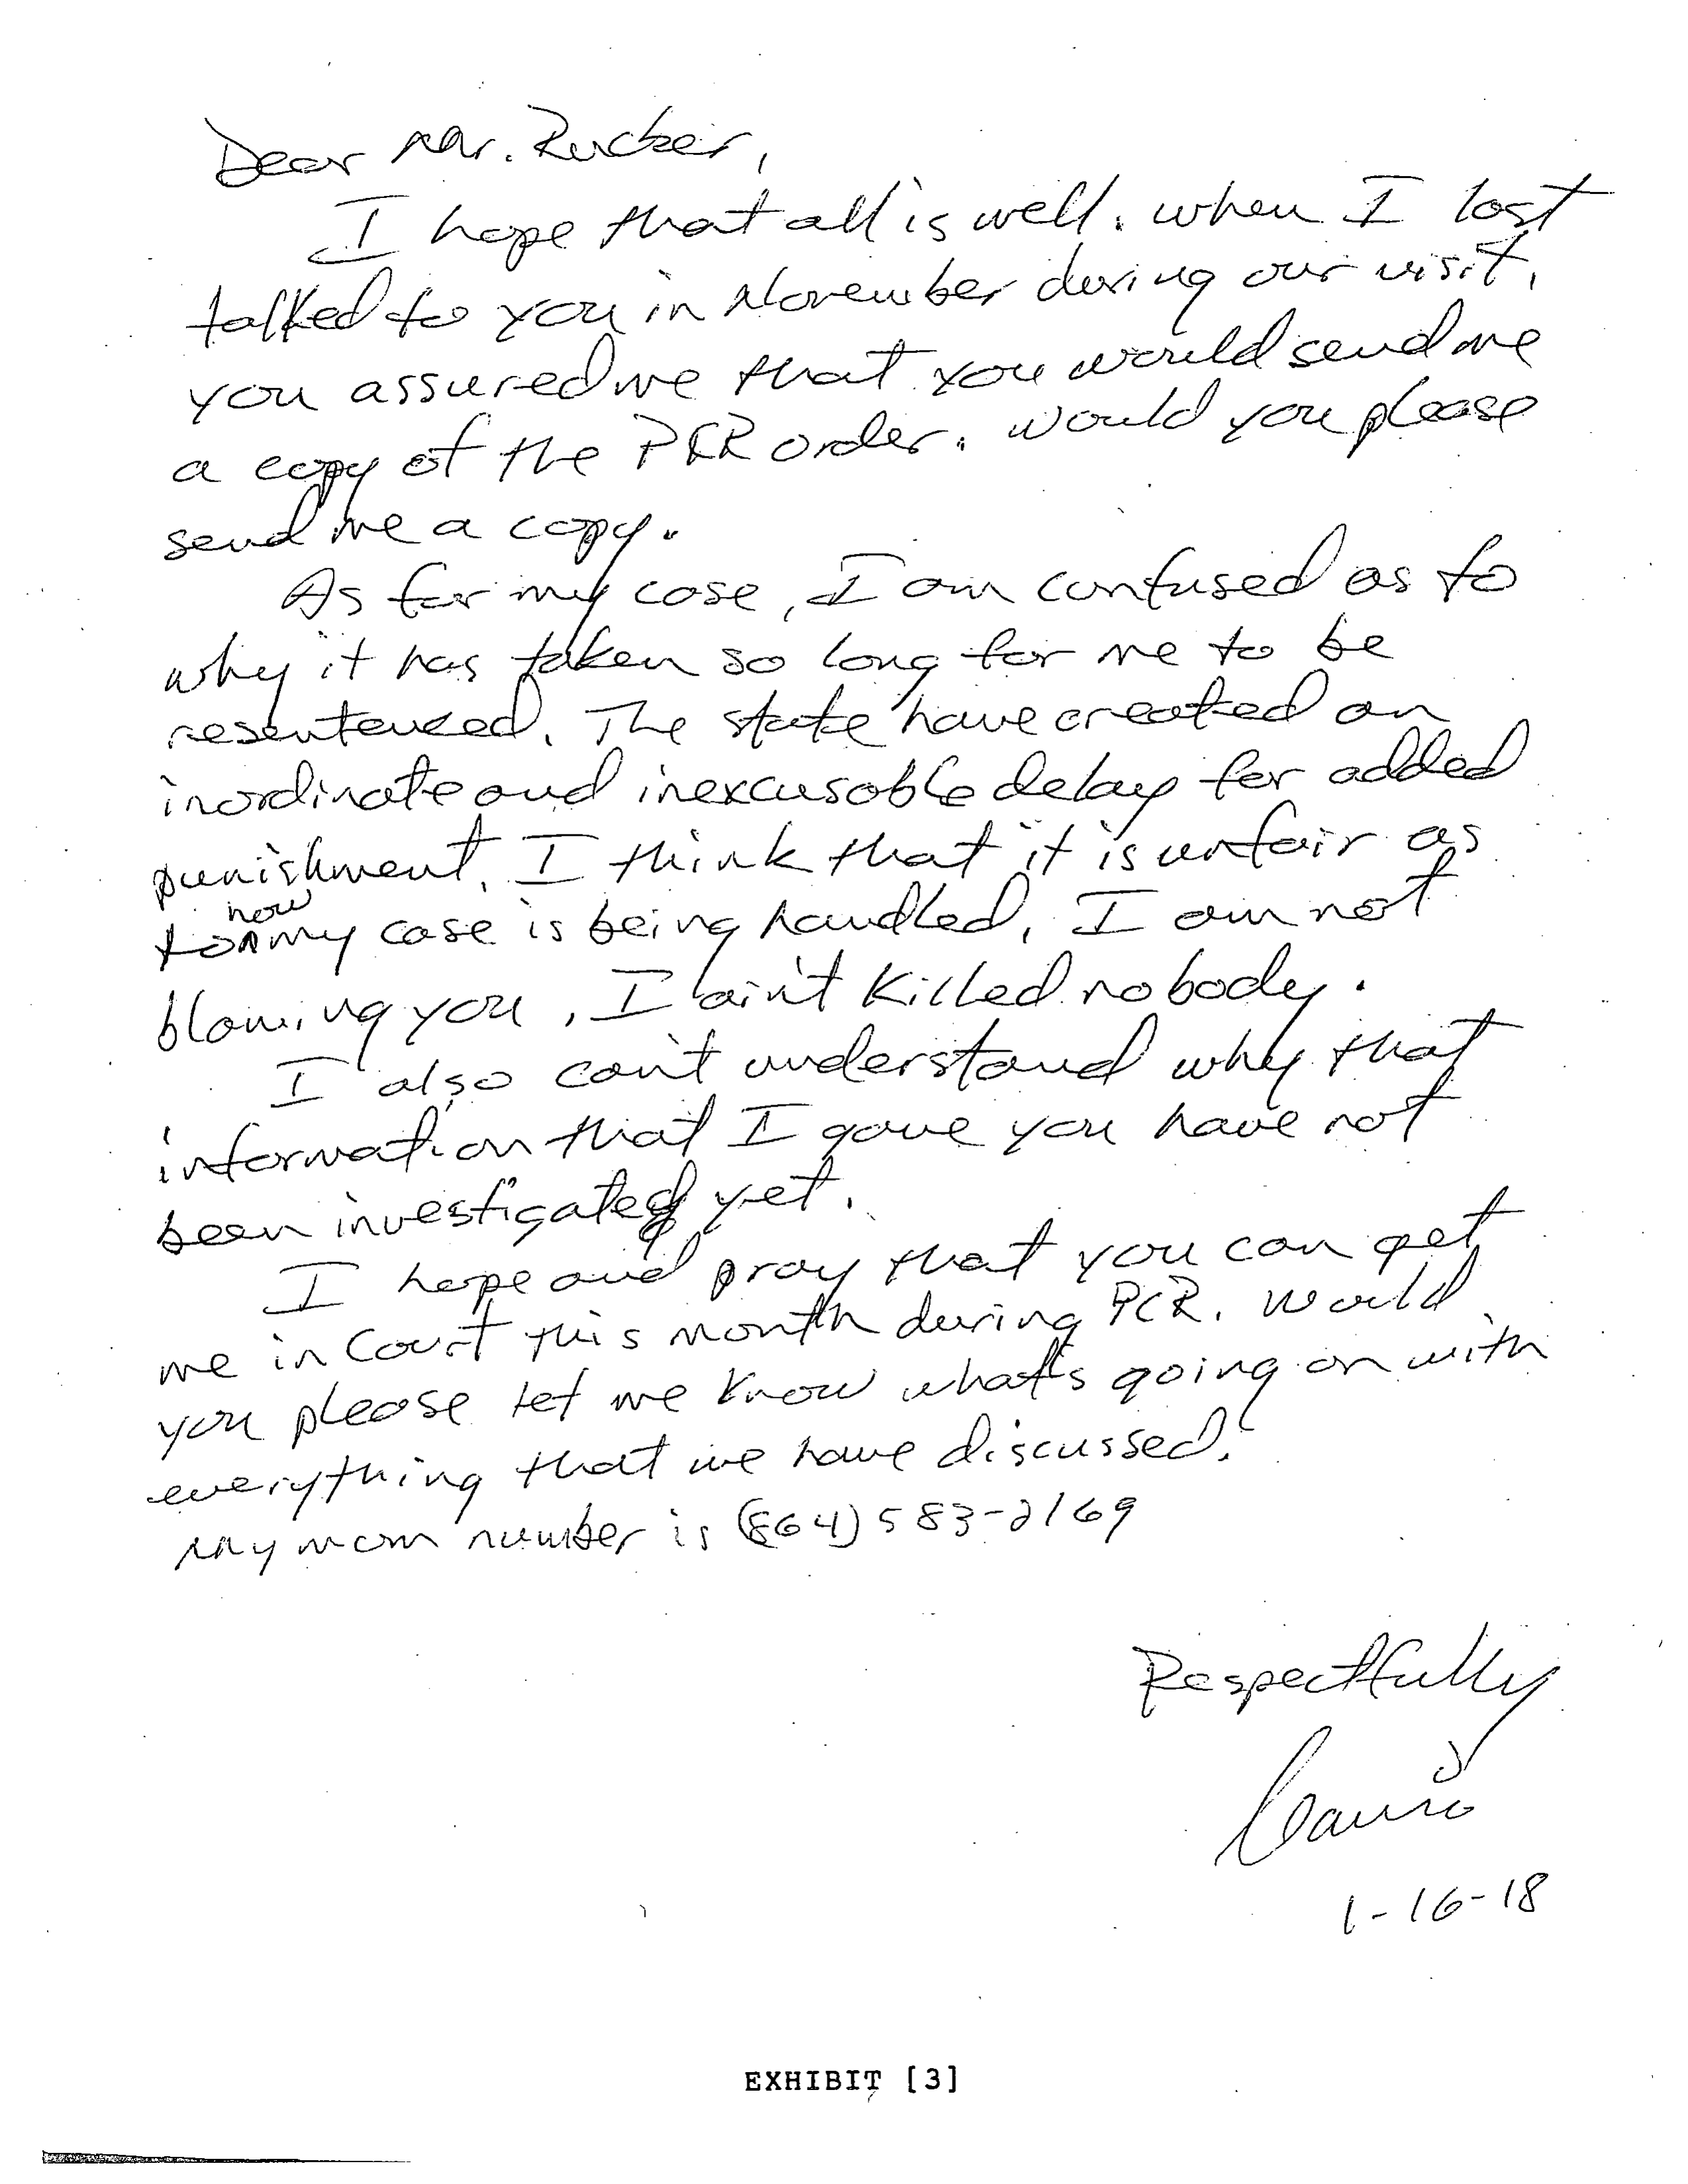 Dear Mr. Rucker,
I hope that all is well. when I last
talked to you in November during our visit,
you assured me that you would send me
a copy of the PCR order. would you please
send me a copy.
As for my case, I am confused as to
why it has taken so long for me to be
resentenced. The state have created an
inordinate and inexcusable delay for added
punishment. I think that it is unfair as
how
to my case is being handled, I am not
blaming you, I ain't killed nobody.
I also can't understand why that
information that I gave you have not
been investigated yet.
I hope and pray that you can get
me in Court this month during PCR. Would
you please let me know what's going on with
everything that we have discussed.
My mom number is (864) 583-2169
Respectfully
1-16-18
EXHIBIT [3]